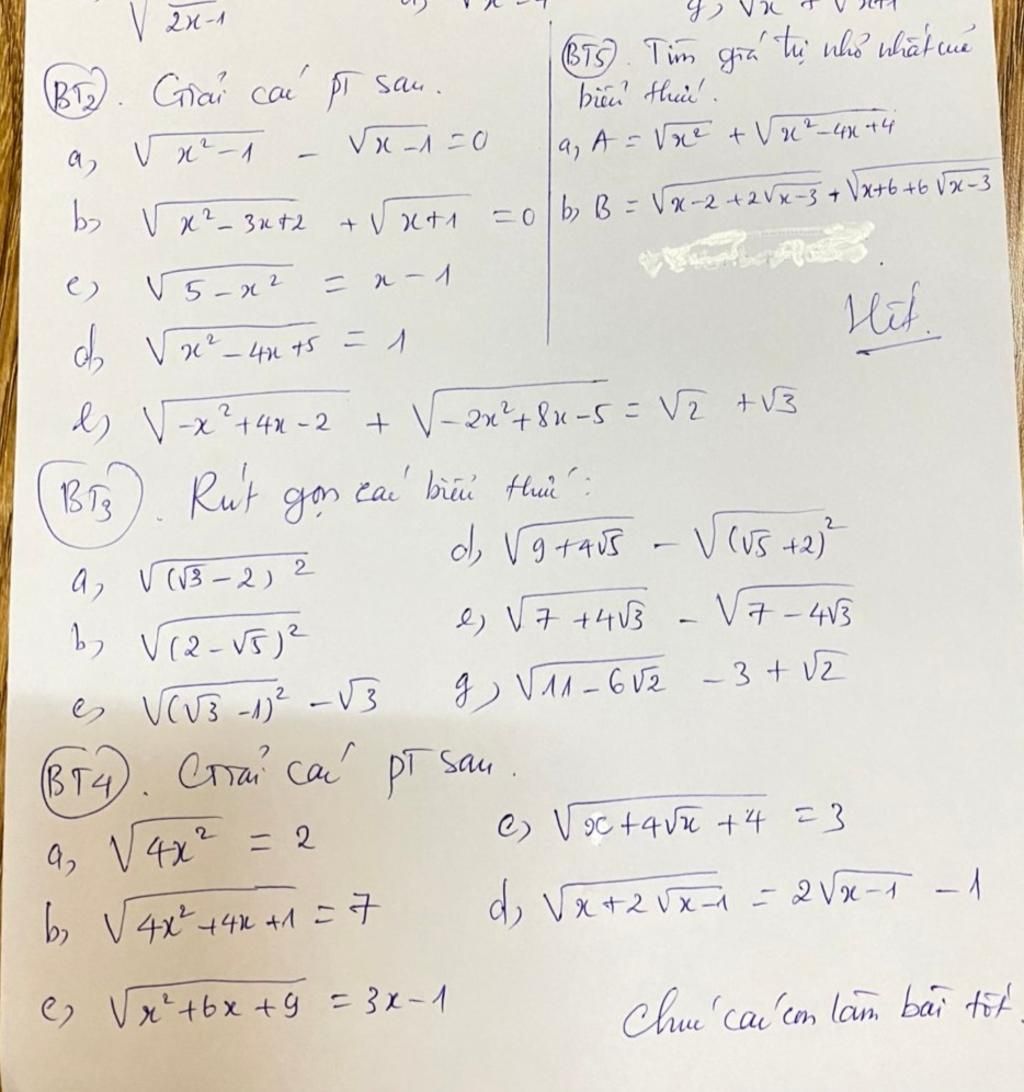 √2x-1
BT2. Giải các PT sau.
a, √(x²-1) - √(x-1) = 0
b, √(x²-3x+2) + √(x+1) = 0
c, √(5-x²) = x-1
d, √(x²-4x+5) = 1
e, √(-x²+4x-2) + √(-2x²+8x-5) = √2 + √3
BT5. Tìm giá trị nhỏ nhất của
biểu thức.
a, A = √x² + √(x²-4x+4)
b, B = √(x-2+2√(x-3)) + √(x+6+6√(x-3))
Hết.
BT3. Rút gọn các biểu thức:
a, √(√3-2)²
b, √(2-√5)²
c, √(√3-1)² - √3
d, √(9+4√5) - √(√5+2)²
e, √(7+4√3) - √(7-4√3)
g, √(11-6√2) - 3 + √2
BT4. Giải các PT sau.
a, √4x² = 2
b, √(4x²+4x+1) = 7
c, √(x²+6x+9) = 3x-1
c, √(x+4√x+4) = 3
d, √(x+2√(x-1)) = 2√(x-1) - 1
Chúc các con làm bài tốt.